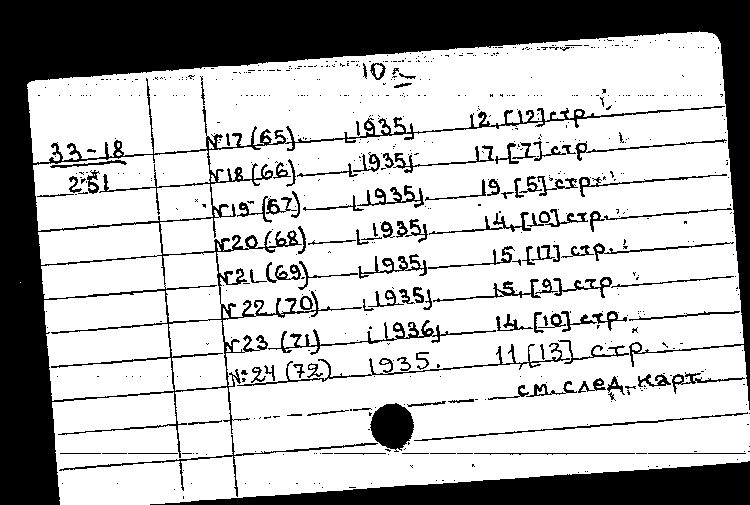 10
33-18
251
№17 (65). [1935] 12, [12] стр.
№18 (66). [1935] 17, [7] стр.
№19 (67). [1935]. 19, [5] стр.
№20 (68). [1935]. 14, [10] стр.
№21 (69). [1935] 15, [17] стр.
№22 (70). [1935]. 15, [9] стр.
№23 (71) [1936]. 14, [10] стр.
№24 (72). 1935. 11, [13] стр.
см. след. карт.